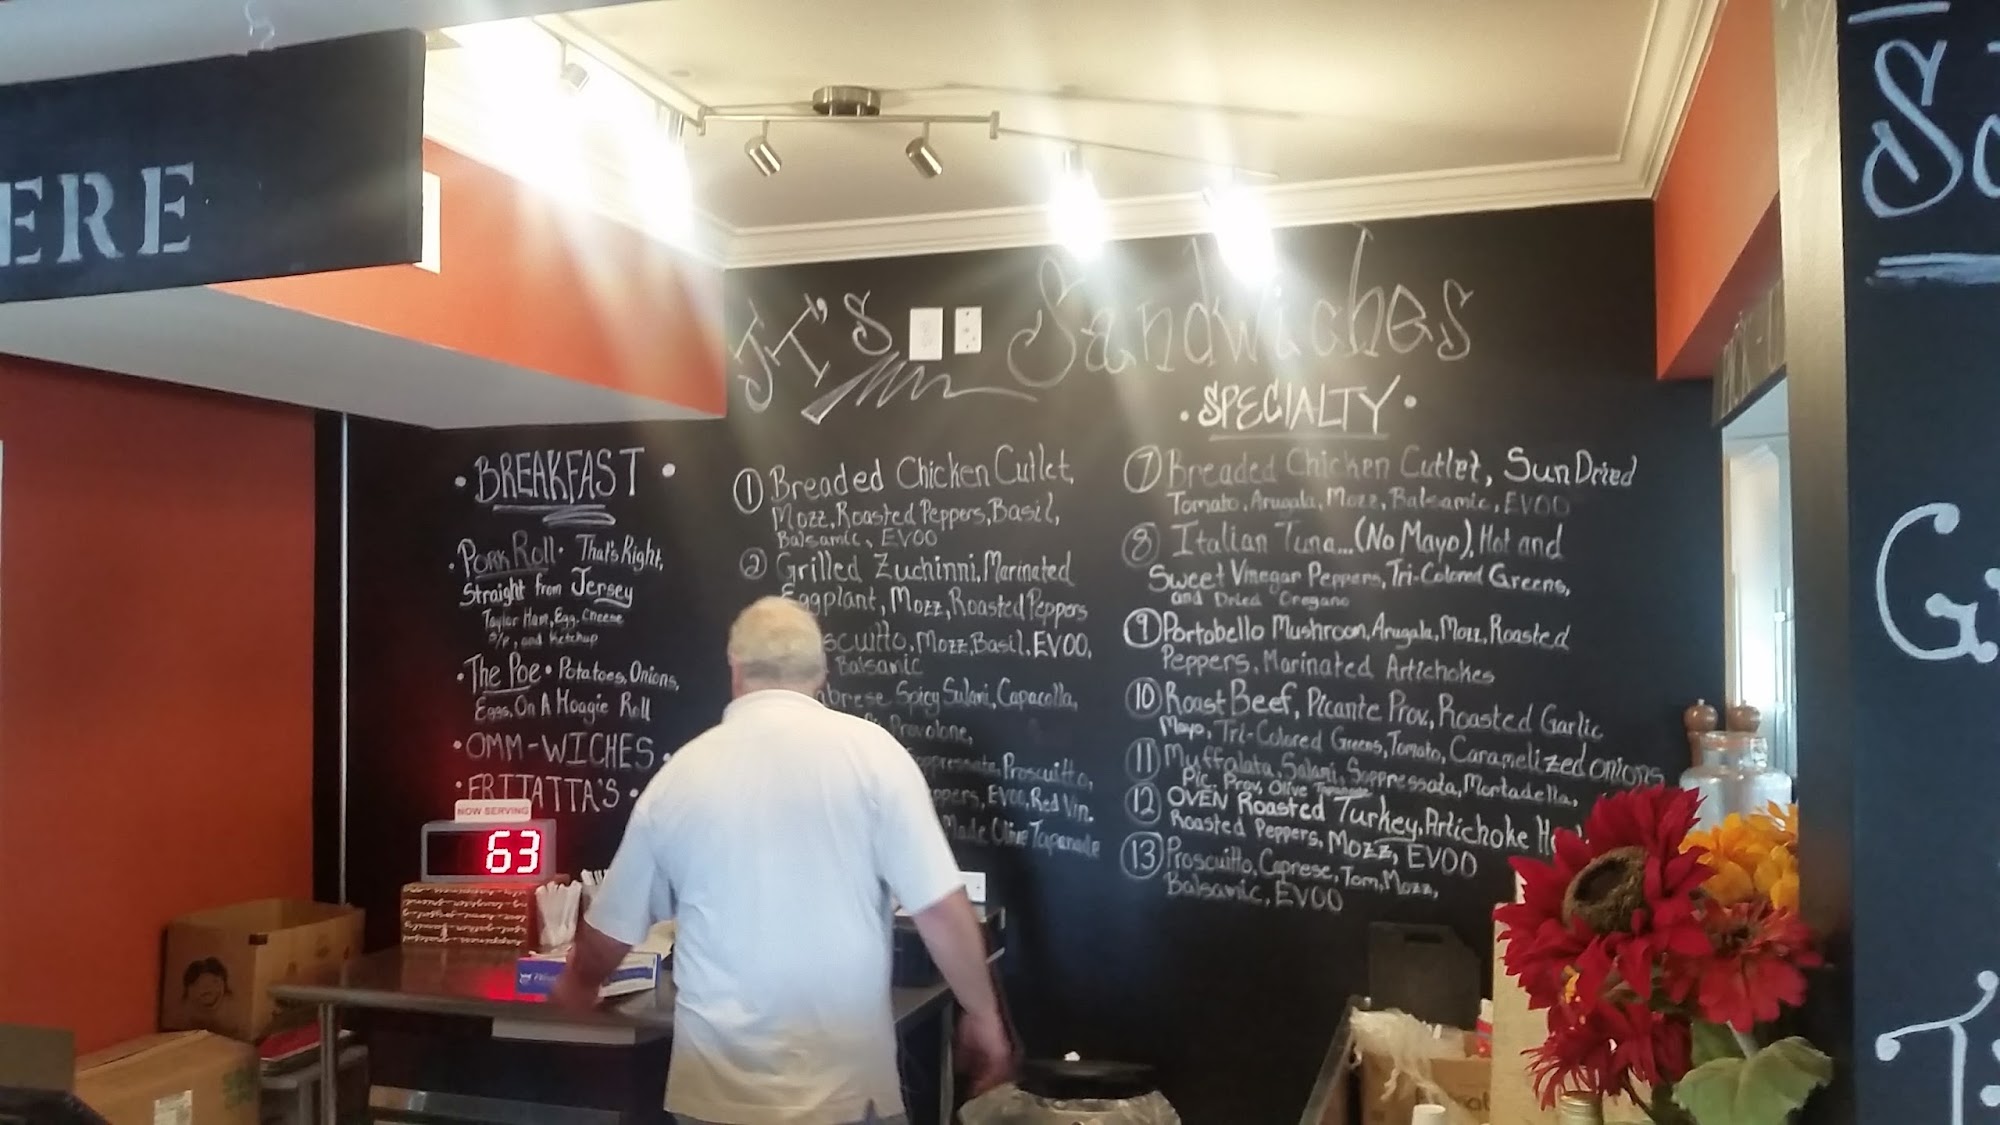 ERE
JT's Sandwiches
• BREAKFAST •
• Pork Roll • That's Right,
Straight from Jersey
Taylor Ham, Egg, Cheese
S/P, and Ketchup
• The Poe • Potatoes, Onions,
Eggs, On A Hoagie Roll
• OMM-WICHES •
• FRITTATTA'S •
NOW SERVING
63
① Breaded Chicken Cutlet,
Mozz, Roasted Peppers, Basil,
Balsamic, EVOO
② Grilled Zuchinni, Marinated
Eggplant, Mozz, Roasted Peppers
Mozz, Basil, EVOO,
Balsamic
Spicy Sulani, Capacolla,
Provolone,
Proscuitto,
EVOO, Red Vin.
Made Olive Tapanade
• SPECIALTY •
⑦ Breaded Chicken Cutlet, Sun Dried
Tomato, Arugala, Mozz, Balsamic, EVOO
⑧ Italian Tuna...(No Mayo), Hot and
Sweet Vinegar Peppers, Tri-Colored Greens,
and Dried Oregano
⑨ Portobello Mushroom, Arugala, Mozz, Roasted
Peppers, Marinated Artichokes
⑩ Roast Beef, Picante Prov., Roasted Garlic
Mayo, Tri-Colored Greens, Tomato, Caramelized onions
⑪ Muffalata, Salani, Soppressata, Mortadella,
Pic. Prov, Olive Tapanade
⑫ OVEN Roasted Turkey, Artichoke
Roasted Peppers, Mozz, EVOO
⑬ Proscuitto, Caprese, Tom, Mozz,
Balsamic, EVOO
PICK-U